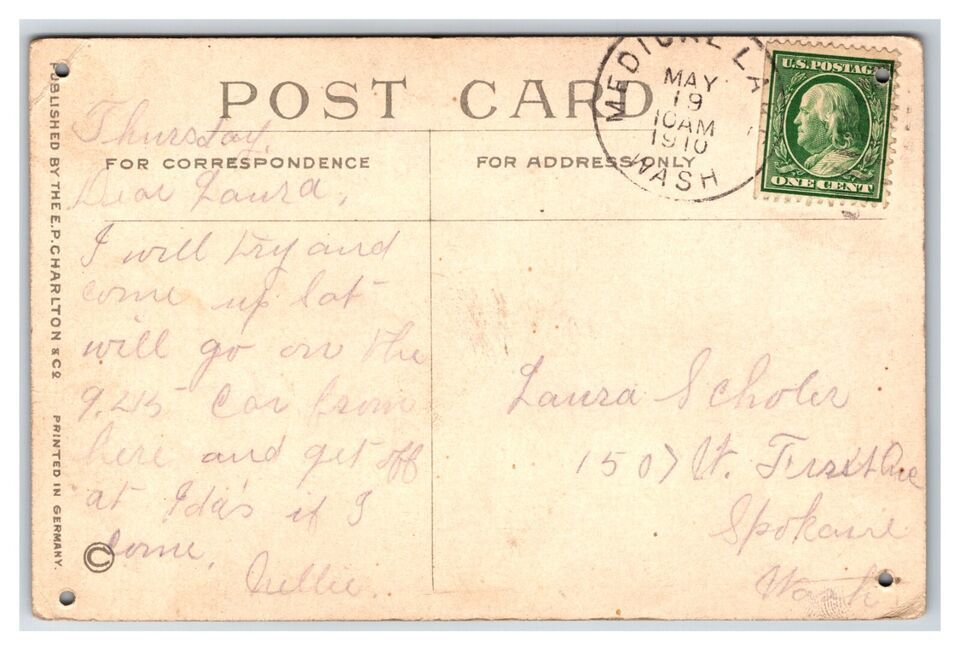 POST CARD
FOR CORRESPONDENCE
FOR ADDRESS ONLY
MEDICAL LA
MAY
19
10AM
1910
WASH
U.S. POSTAG
ONE CENT
PUBLISHED BY THE E.P. CHARLTON & CO. PRINTED IN GERMANY.
Thursday,
Dear Laura,
I will try and
come up Sat
will go on the
9.45 car from
here and get off
at Ida's if I
come.
Nellie.
©
Laura Scholer
1507 W. First Ave
Spokane
Wash